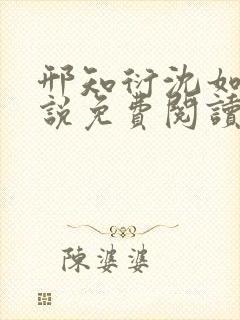 邢知衍沈如
說免費閱讀
陳婆婆